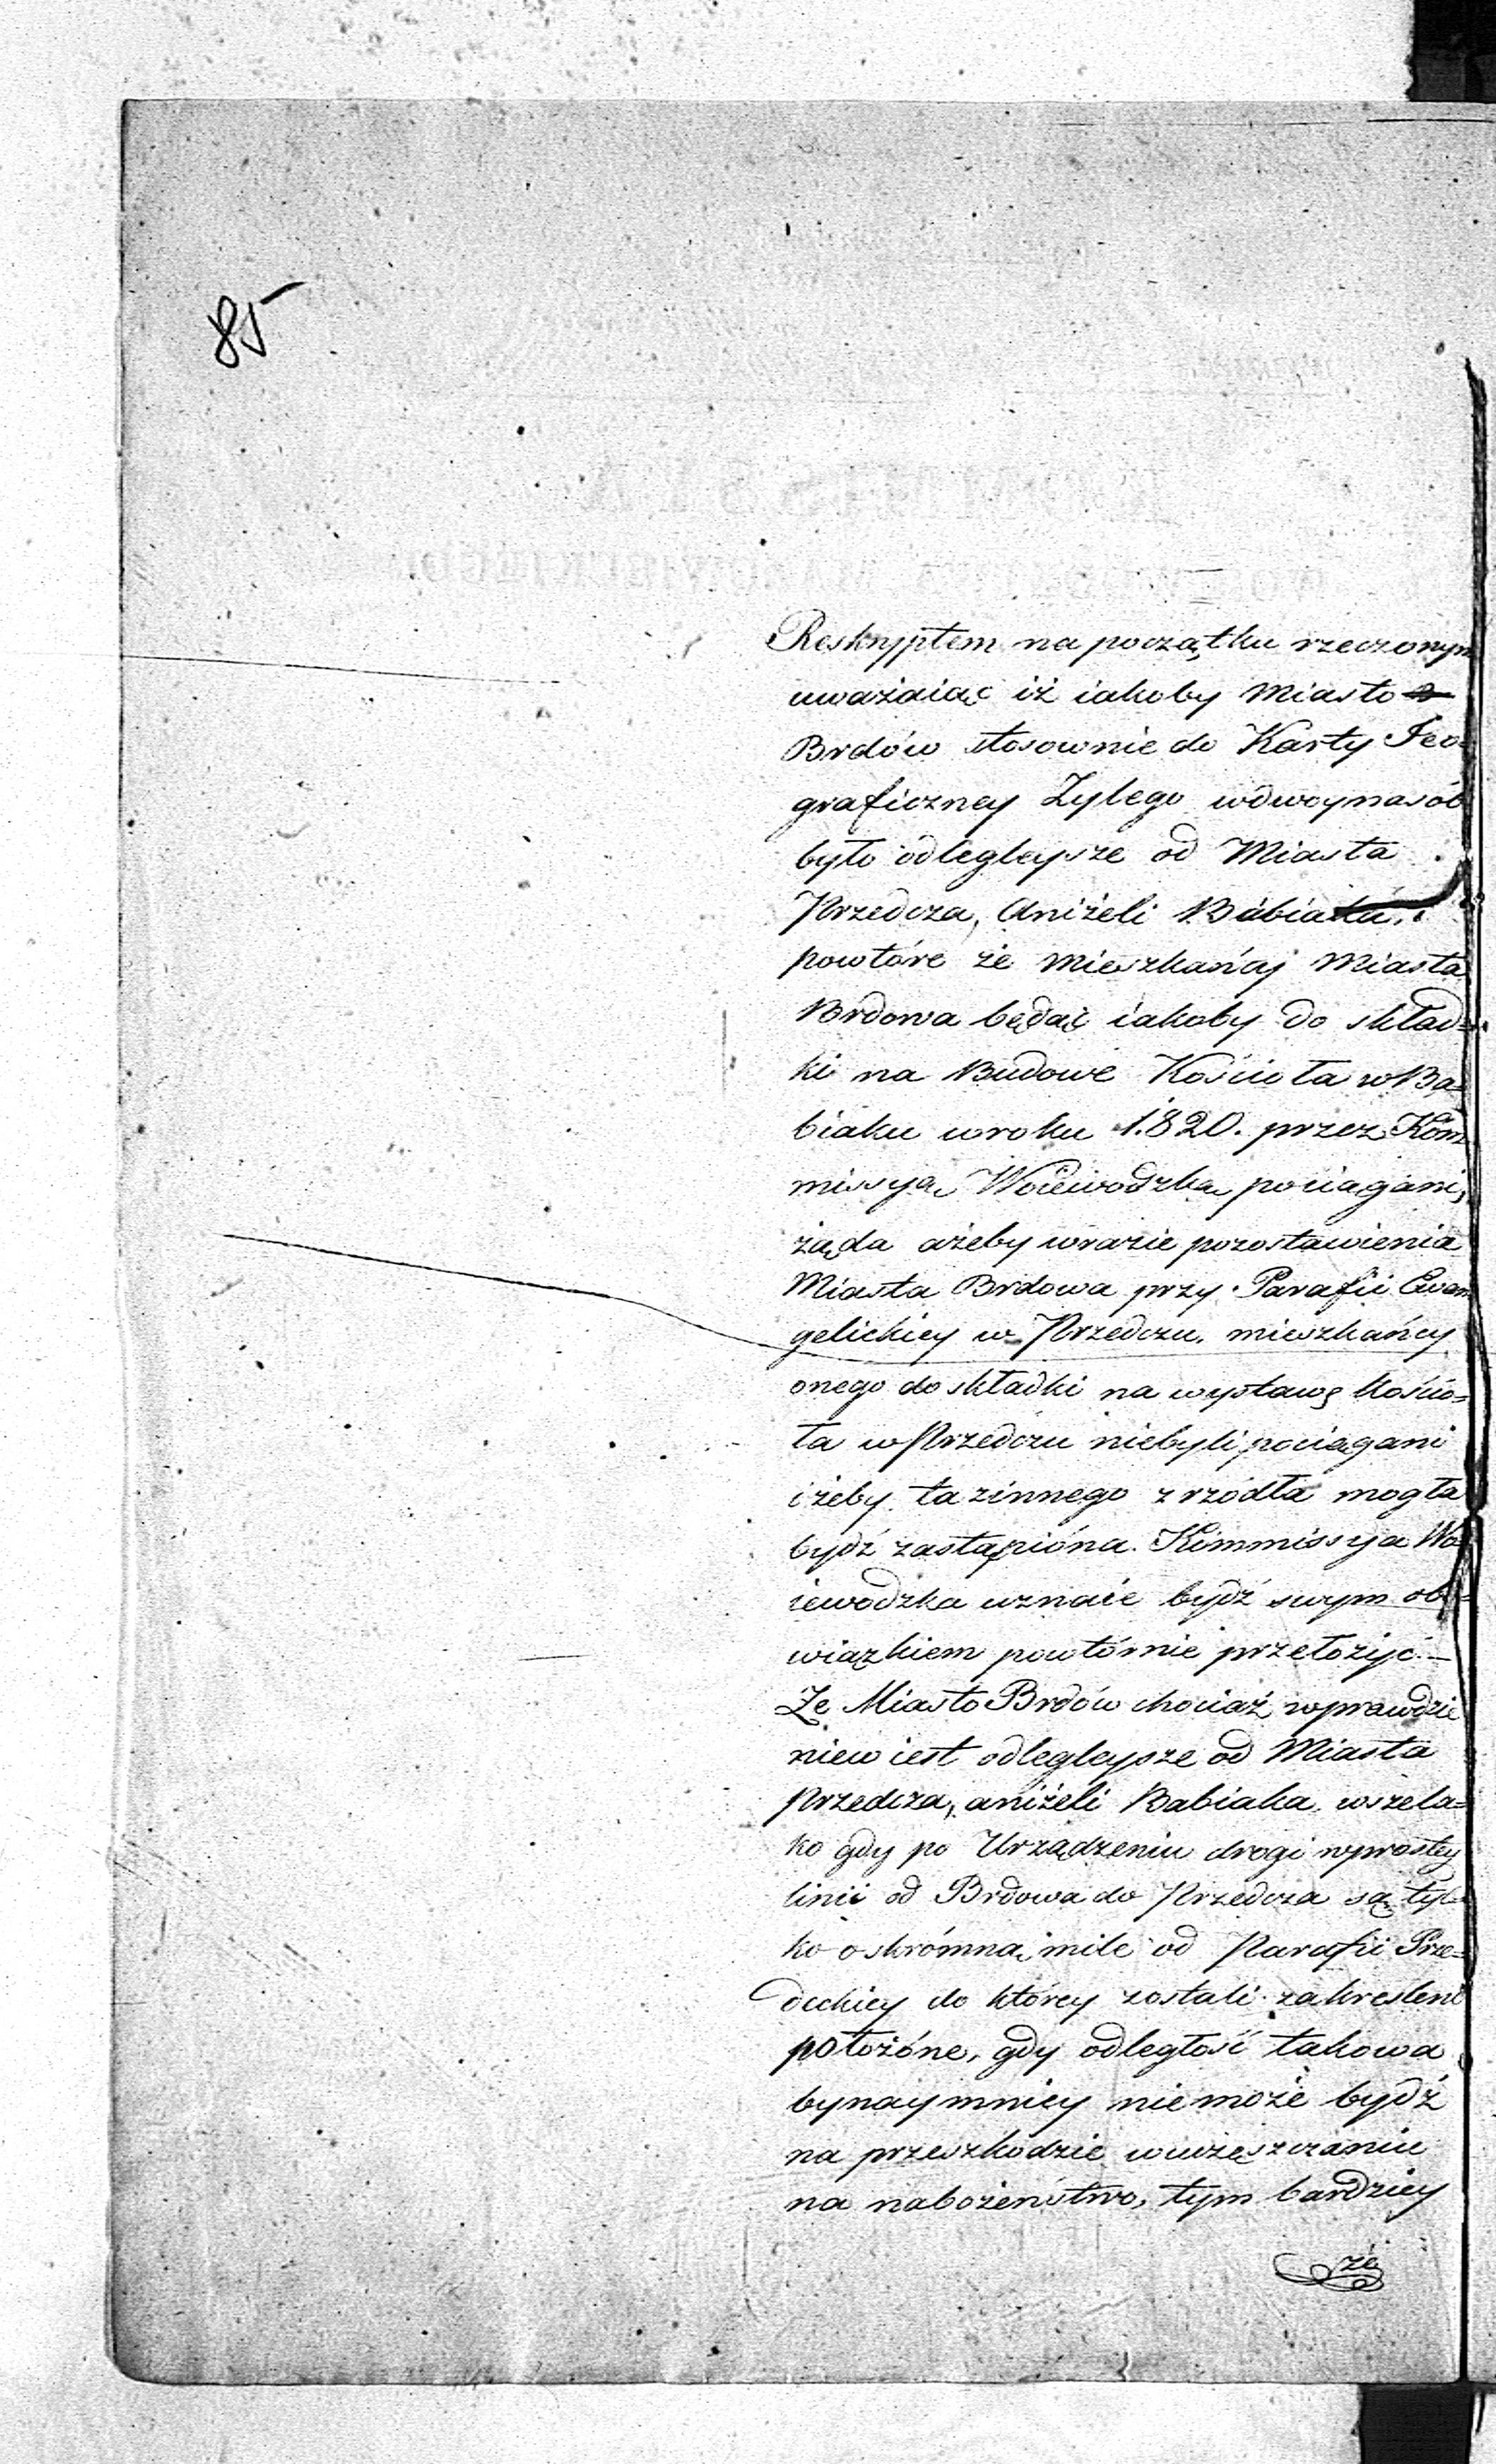 85
Reskryptem na początku rzeczonym
uważaiąc iż iakoby Miasto
Brdów stosownie do Karty Jeo=
graficzney Zylego wdwoynasób
było odległeysze od Miasta
Przedcza, Aniżeli Babiaka,
powtóre że Mieszkańcy Miasta
Brdowa będąc iakoby do skład=
ki na Budowę Kościoła w Ba=
biaku w roku 1.820. przez Kom=
missyą Woiewodzką pociągani,
żąda ażeby w razie pozostawienia
Miasta Brdowa przy Parafii Ewan
gelickiey w Przedczu, mieszkańcy
onego do składki na wystawę Kościo=
ła w Przedczu niebyli pociągani
i żeby ta zinnego zrzódła mogła
bydź zastąpióna. Kommissya Wo=
iewodzka uznaie bydź swym obo=
wiązkiem powtórnie przełożyć –
Że Miasto Brdów chociaż wprawdzie
iest odległeysze od Miasta
Przedcza, aniżeli Babiaka, wszela=
ko gdy po Urządzeniu drogi wprostey
linii od Brdowa do Przedcza są tyl=
ko o skrómną mile od Parafii Prze=
deckiey do którey zostali zakresleni
położóne, gdy odległość takowa
bynaymniey niemoże bydź
na przeszkodzie wuczęszczaniu
na nabożeństwo, tym bardziey
że